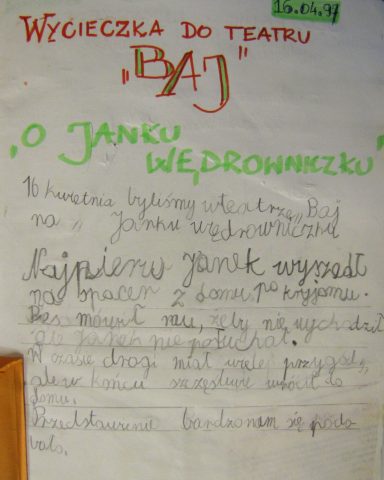 16.04.97
WYCIECZKA DO TEATRU
"BAJ"
"O JANKU
WĘDROWNICZKU"
16 kwietnia byliśmy w teatrze „Baj
na „Janku wędrowniczku
Najpierw Janek wyszedł
na spacer z domu po kryjomu.
mówił mu, żeby nie wychodził
Janek nie posłuchał.
W czasie drogi miał wiele przygod,
ale w końcu szczęśliwie wrócił do
domu.
Przedstawienie bardzo nam się podo
bało.